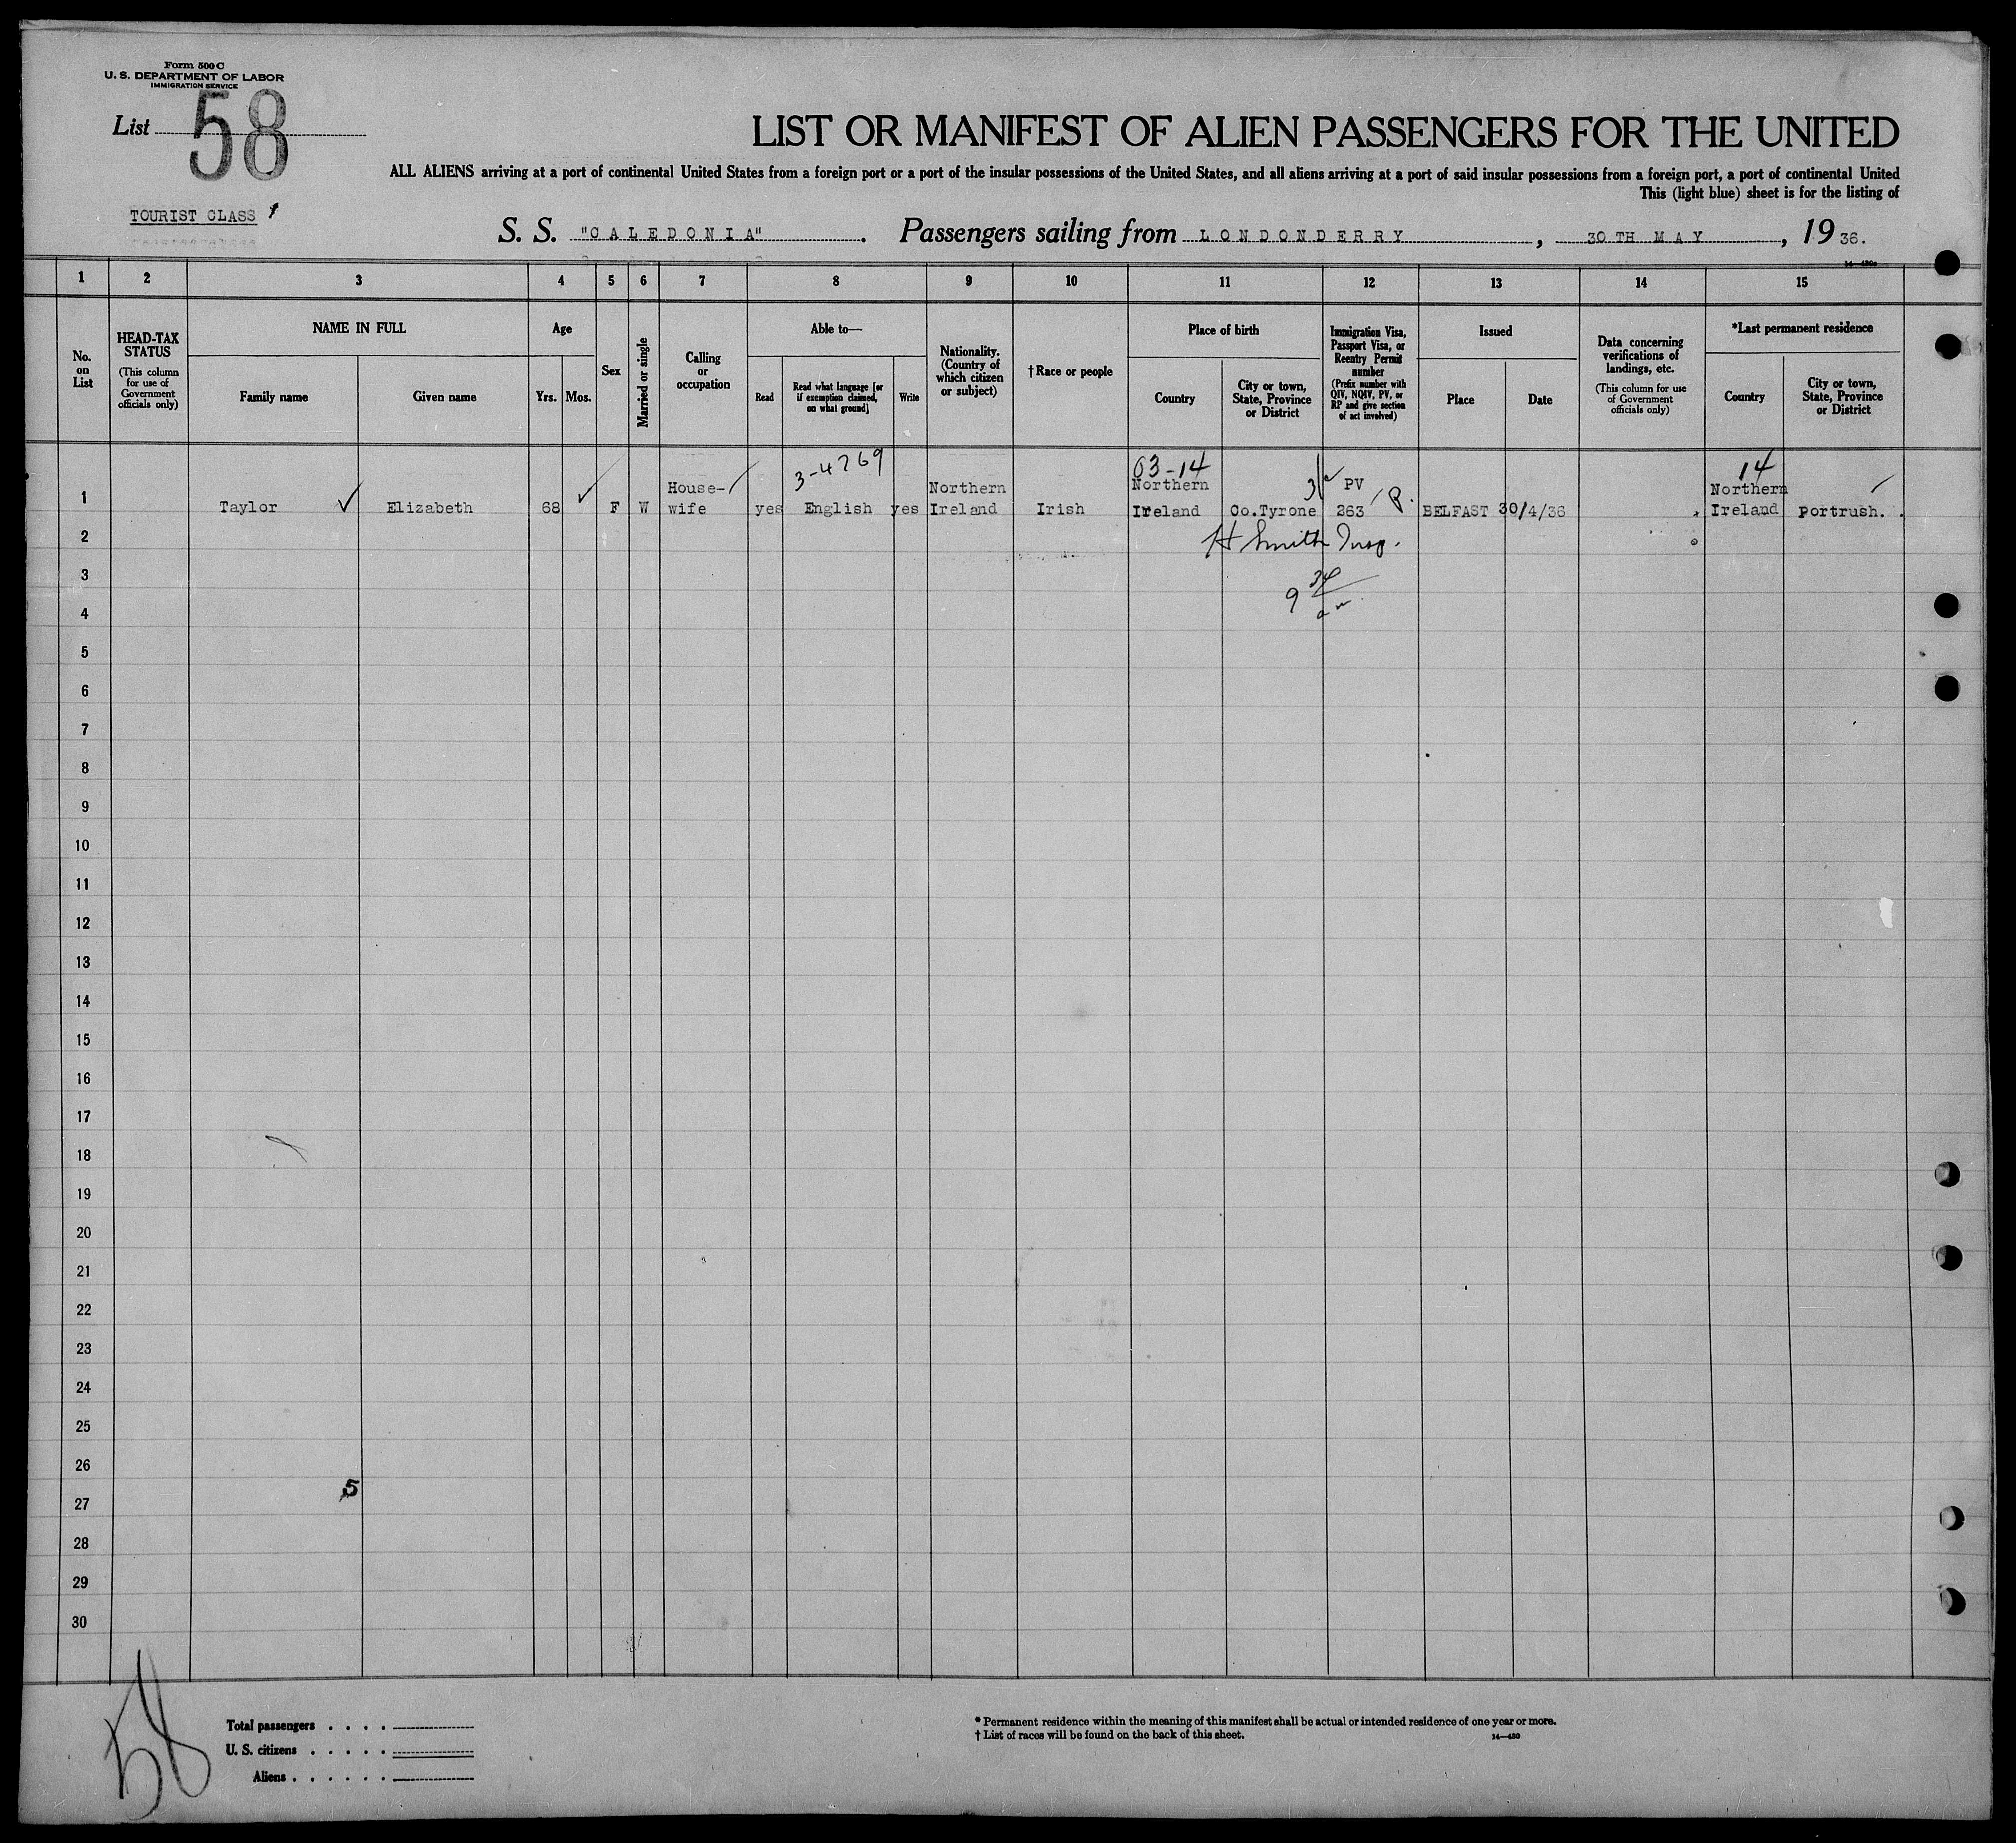 Form 500 C
U. S. DEPARTMENT OF LABOR
IMMIGRATION SERVICE
List 58
LIST OR MANIFEST OF ALIEN PASSENGERS FOR THE UNITED
ALL ALIENS arriving at a port of continental United States from a foreign port or a port of the insular possessions of the United States, and all aliens arriving at a port of said insular possessions from a foreign port, a port of continental United
This (light blue) sheet is for the listing of
TOURIST CLASS
S. S. "CALEDONIA". Passengers sailing from LONDONDERRY, 30 TH MAY, 1936.
1 2 3 4 5 6 7 8 9 10 11 12 13 14 15
No. on List
HEAD-TAX STATUS
(This column for use of Government officials only)
NAME IN FULL
Family name
Given name
Age
Yrs. Mos.
Sex
Married or single
Calling or occupation
Able to—
Read
Read what language [or if exemption claimed, on what ground]
Write
Nationality. (Country of which citizen or subject)
†Race or people
Place of birth
Country
City or town, State, Province or District
Immigration Visa, Passport Visa, or Reentry Permit number
(Prefix number with QIV, NQIV, PV, or RP and give section of act involved)
Issued
Place
Date
Data concerning verifications of landings, etc.
(This column for use of Government officials only)
*Last permanent residence
Country
City or town, State, Province or District
3-4769 03-14 14
House- Northern Northern PV Northern
1 Taylor Elizabeth 68 F W wife yes English yes Ireland Irish Ireland Co.Tyrone 263 BELFAST 30/4/36 Ireland Portrush.
2 H Smith Insp.
3
4
5
6
7
8
9
10
11
12
13
14
15
16
17
18
19
20
21
22
23
24
25
26
5
27
28
29
30
58
Total passengers
U. S. citizens
Aliens
* Permanent residence within the meaning of this manifest shall be actual or intended residence of one year or more.
† List of races will be found on the back of this sheet.
14—430